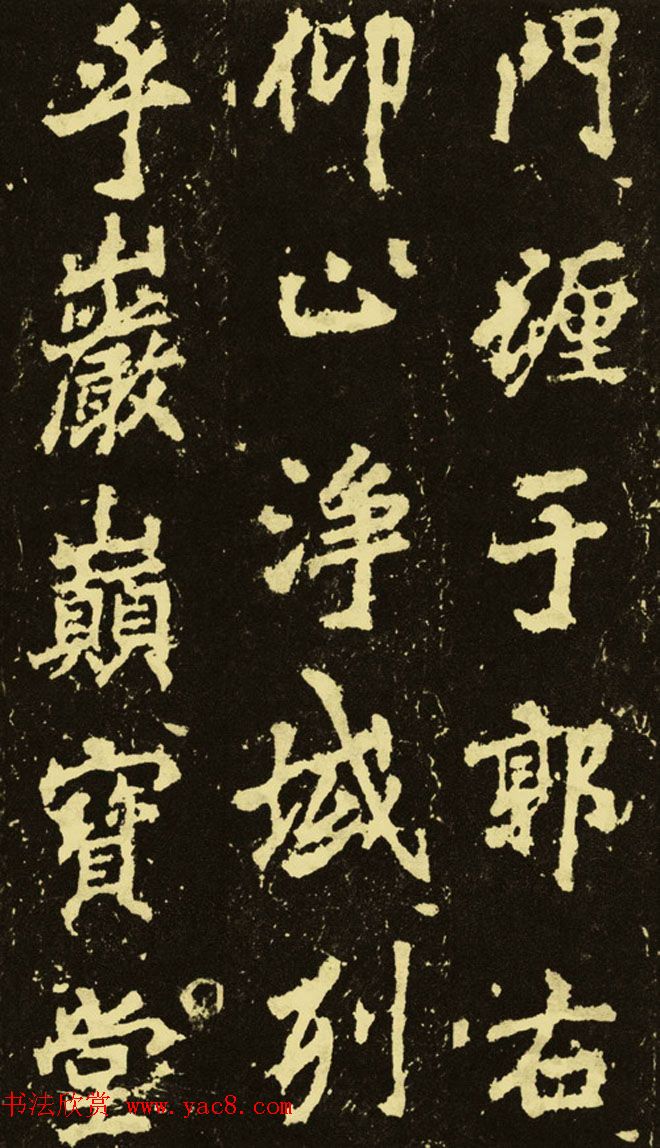 門壥于郭右
仰止淨域列
乎巖巔寶堂
书法欣赏 www.yac8.com